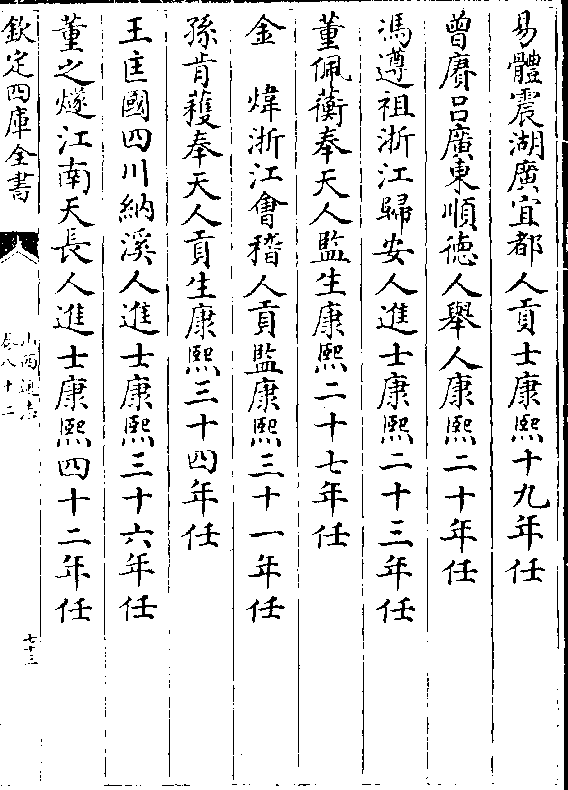 易體震湖廣宜都人貢士康熙十九年任
曾賡吕廣東順徳人舉人康熙二十年任
馮遵祖浙江歸安人進士康熙二十三年任
董佩蘅奉天人監生康熙二十七年任
金　煒浙江會稽人貢監康熙三十一年任
孫肯蘐奉天人貢生康熙三十四年任
王匡國四川納溪人進士康熙三十六年任
董之燧江南天長人進士康熙四十二年任
欽定四庫全書
山西通志
卷八十二
七十三